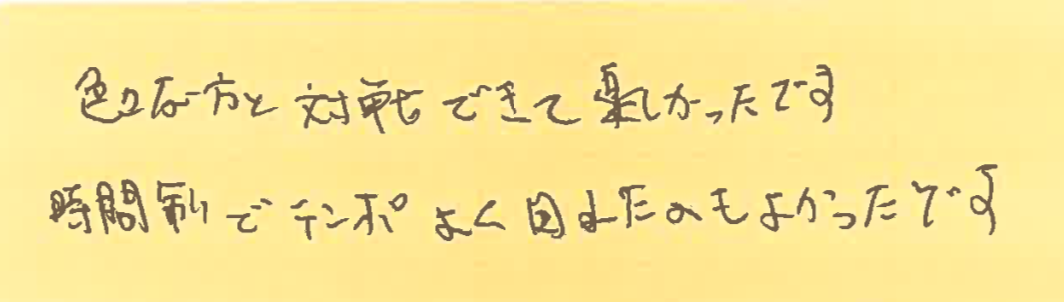 色々な方と対戦できて楽しかったです
時間制でテンポよく回れたのもよかったです